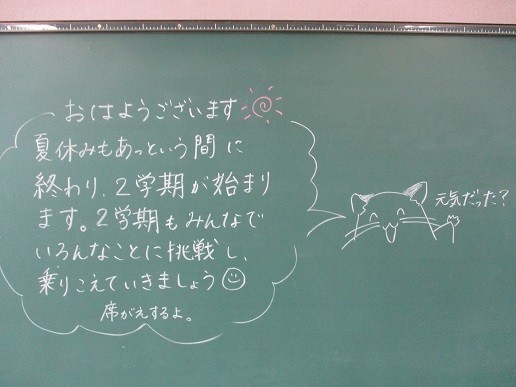 おはようございます
夏休みもあっという間に
終わり、2学期が始まり
ます。2学期もみんなで
いろんなことに挑戦し、
乗りこえていきましょう
席がえするよ。
元気だった?